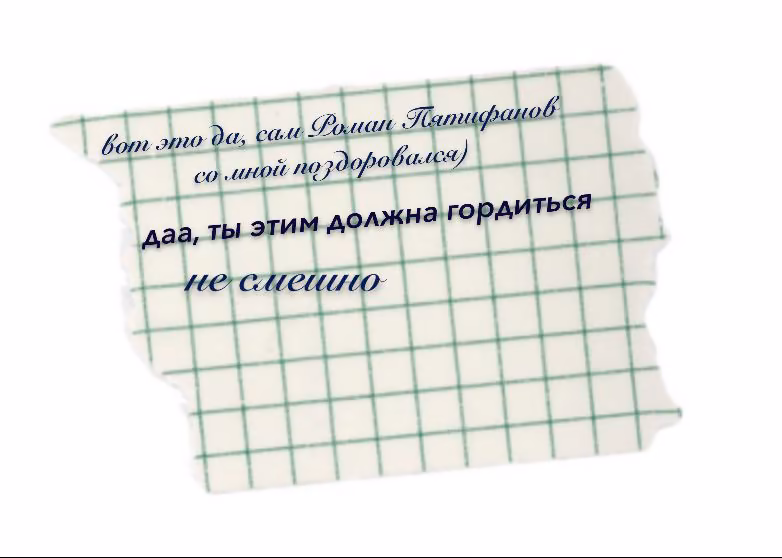 вот это да, сам Роман Пятифанов
со мной поздоровался)
даа, ты этим должна гордиться
не смешно